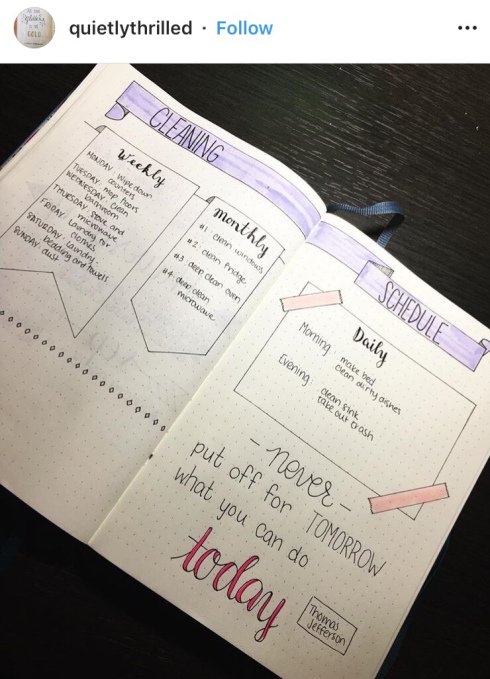 quietlythrilled • Follow
CLEANING
Weekly
MONDAY: Wipe down
counters
TUESDAY: mop floors
WEDNESDAY: Clean
bathroom
THURSDAY: Stove and
microwave
FRIDAY: laundry for
clothes
SATURDAY: laundry-
bedding and towels
SUNDAY: dust
Monthly
#1: clean windows
#2: clean fridge
#3: deep clean oven
#4: deep clean
microwave
SCHEDULE
Daily
Morning: make bed
clean dirty dishes
Evening: clean sink
take out trash
- never -
put off for TOMORROW
what you can do
today
Thomas
Jefferson